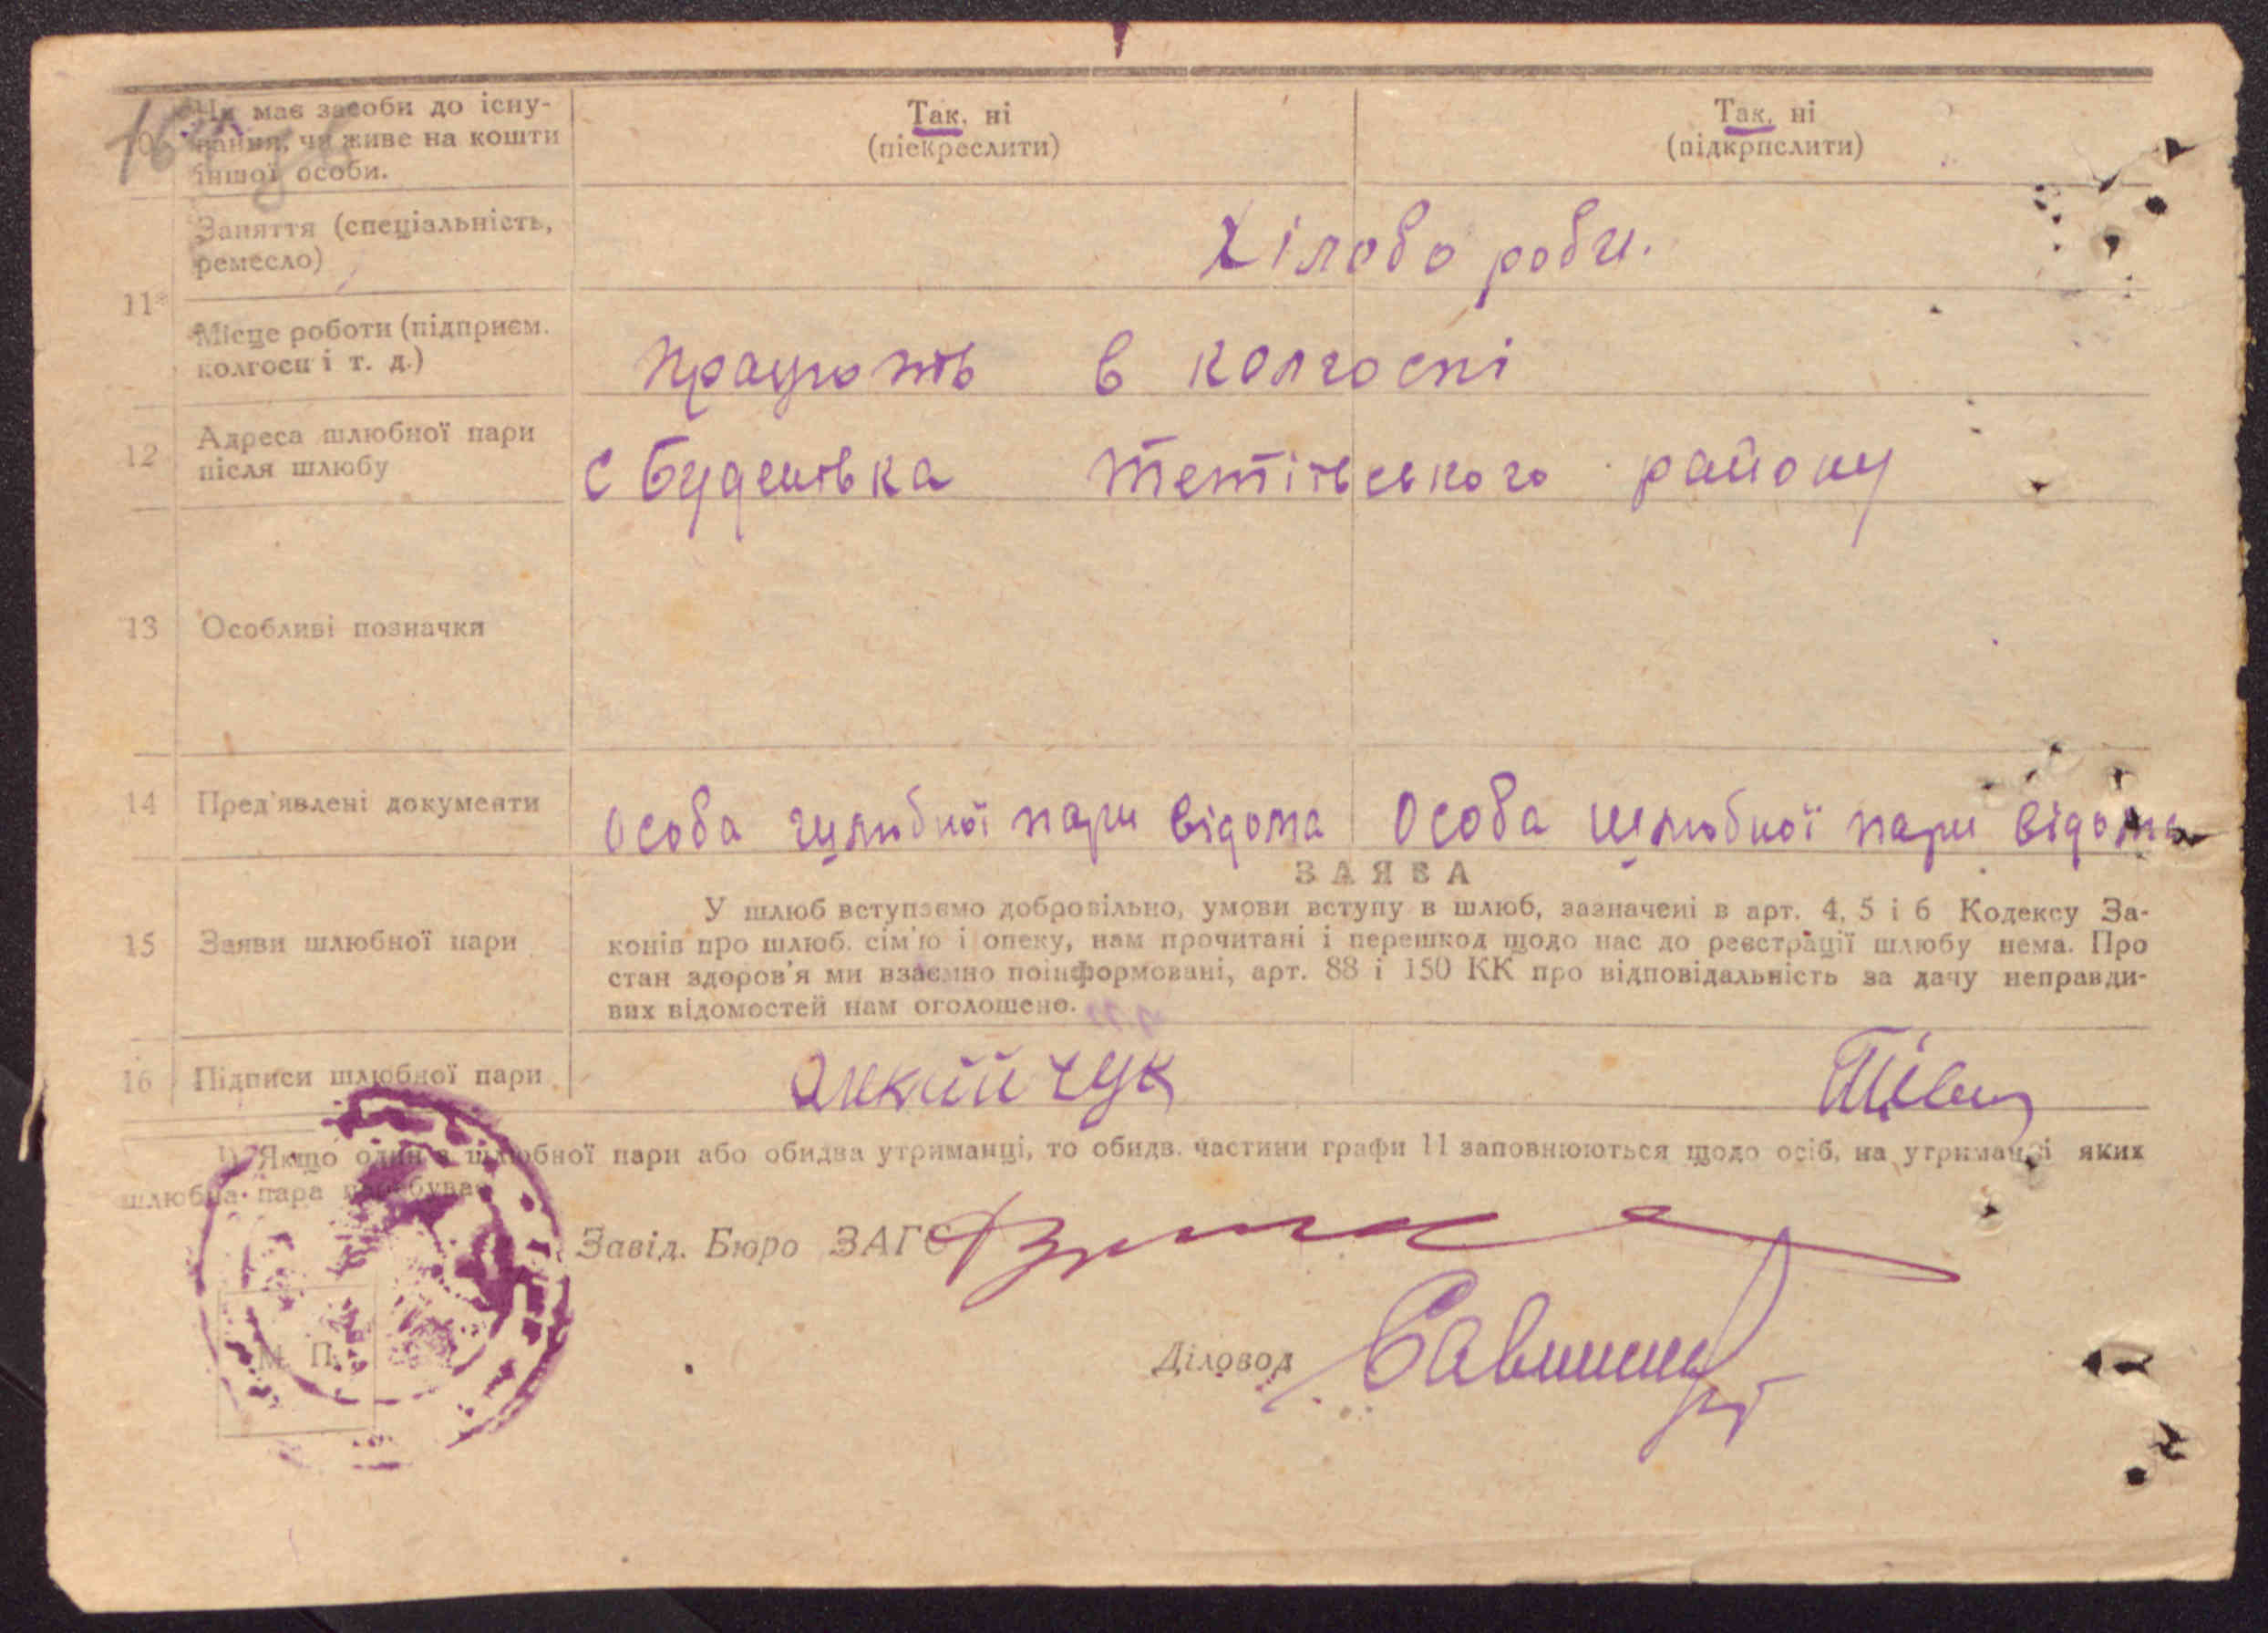 Чи має засоби до існу- Так, ні Так, ні
вання, чи живе на кошти (піекреслити) (підкрпслити)
іншої особи.
Заняття (спеціальність,
ремесло) Хілобо роби.
11*
Місце роботи (підприєм.
колгосп і т. д.) працюють в колгоспі
12 Адреса шлюбної пари
після шлюбу с Буденівка Тетіївського району
13 Особливі позначки
14 Пред'явлені документи Особа шлюбної пари відома Особа шлюбної пари відома
ЗАЯВА
У шлюб вступаємо добровільно, умови вступу в шлюб, зазначені в арт. 4, 5 і 6 Кодексу За-
15 Заяви шлюбної пари конів про шлюб. сім'ю і опеку, нам прочитані і перешкод щодо нас до реєстрації шлюбу нема. Про
стан здоров'я ми взаємно поінформовані, арт. 88 і 150 КК про відповідальність за дачу неправди-
вих відомостей нам оголошено.
16 Підписи шлюбної пари
1) Якщо один з шлюбної пари або обидва утриманці, то обидв. частини графи 11 заповнюються щодо осіб, на утриманні яких
шлюбна пара перебуває
Завід. Бюро ЗАГС
Діловод
М. П.